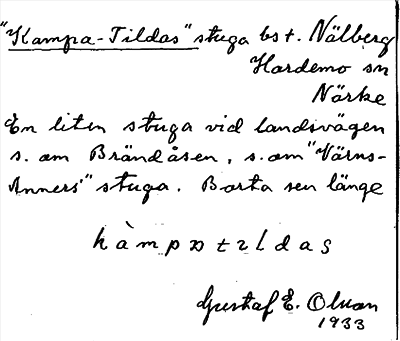 "Kampa-Tildas" stuga bst. Nälberg
Hardemo sn
Närke
En liten stuga vid landsvägen
s. om Brändåsen, s. om "Värns-
Anners'" stuga. Borta sen länge
kàmpɒtɩldas
Gustaf E. Olsson
1933